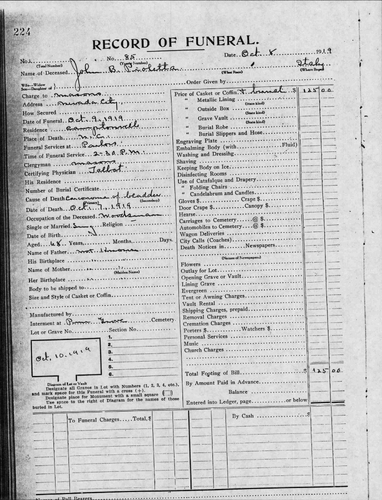 224
RECORD OF FUNERAL.
No. No. 85 Date Oct 8 1919
(Total Number) (Yearly Number)
Name of Deceased John B. Italy
(What Race) (Where Raised)
Order Given by
Charge to Masons
Address Nevada City
How Secured
Date of Funeral Oct. 9, 1919
Residence
Place of Death N. C.
Funeral Services at Parlors
Time of Funeral Service 2:30 P.M.
Clergyman Masons
Certifying Physician
His Residence
Number of Burial Certificate
Cause of Death of bladder
Date of Death Oct. 1919
Occupation of the Deceased
Single or Married Sing Religion
Date of Birth
Aged 68 Years Months, Days.
Name of Father not known
His Birthplace
Name of Mother
(Maiden Name)
Her Birthplace
Body to be shipped to
Size and Style of Casket or Coffin
Manufactured by
Interment at Pine Grove Cemetery
Lot or Grave No. Section No.
Oct. 10. 1919
1
2
3
4
5
6
Diagram of Lot or Vault
Designate all Graves in Lot with Numbers (1, 2, 3, 4, etc.)
and mark space for this Funeral with a cross (+).
Designate place for Monument with a small square
Use the space to the right of Diagram for the names of those
buried in Lot.
Price of Casket or Coffin & burial $ 125 00
" Metallic Lining
(State kind)
" Outside Box
(State kind)
" Grave Vault
(State kind)
" Burial Robe
" Burial Slippers and Hose
Engraving Plate
Embalming Body (with Fluid)
Washing and Dressing
Shaving
Keeping Body on Ice
Disinfecting Rooms
Use of Catafalque and Drapery
" Folding Chairs
" Candelabrum and Candles
Gloves $ Crape $
Door Crape $ Canopy $
Hearse
Carriages to Cemetery @ $
Automobiles to Cemetery @ $
Wagon Deliveries @ $
City Calls (Coaches) @ $
Death Notices in Newspapers
(Names of Newspapers)
Flowers
Outlay for Lot
Opening Grave or Vault
Lining Grave
Evergreen
Tent or Awning Charges
Vault Rental
Shipping Charges, prepaid
Removal Charges
Cremation Charges
Porters $ Watchers $
Personal Services
Music
Church Charges
Total Footing of Bill $ 125 00
By Amount Paid in Advance
Balance
Entered into Ledger, page or below.
To Funeral Charges. Total $
By Cash $